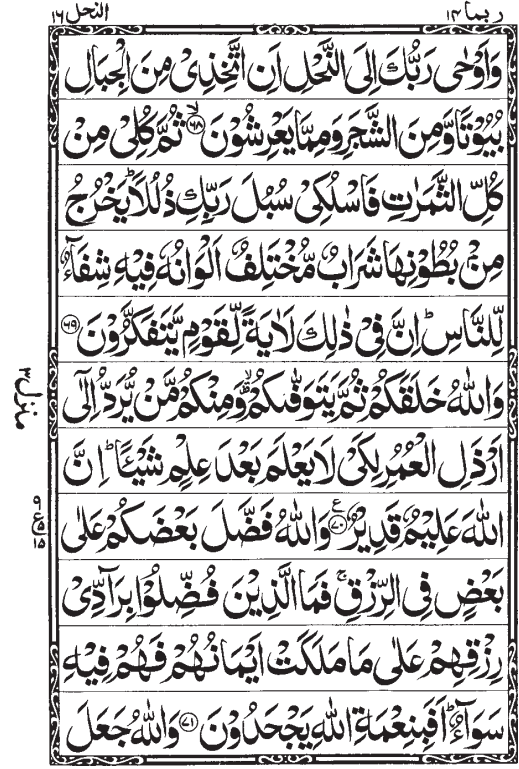 ربما ١٤
النحل ١٦
وَاَوۡحٰى رَبُّكَ اِلَى النَّحۡلِ اَنِ اتَّخِذِىۡ مِنَ الۡجِبَالِ
بُيُوۡتًا وَّمِنَ الشَّجَرِ وَمِمَّا يَعۡرِشُوۡنَۙ‏ ﴿۶۸﴾ ثُمَّ كُلِىۡ مِنۡ
كُلِّ الثَّمَرٰتِ فَاسۡلُكِىۡ سُبُلَ رَبِّكِ ذُلُلًا‌ؕ يَخۡرُجُ
مِنۡۢ بُطُوۡنِهَا شَرَابٌ مُّخۡتَلِفٌ اَلۡوَانُهٗ فِيۡهِ شِفَآءٌ
لِّلنَّاسِ‌ؕ اِنَّ فِىۡ ذٰ لِكَ لَاٰيَةً لِّقَوۡمٍ يَّتَفَكَّرُوۡنَ‏ ﴿۶۹﴾
وَاللّٰهُ خَلَقَكُمۡ ثُمَّ يَتَوَفّٰٮكُمۡ‌ۙ وَمِنۡكُمۡ مَّنۡ يُّرَدُّ اِلٰٓى
اَرۡذَلِ الۡعُمُرِ لِكَىۡ لَا يَعۡلَمَ بَعۡدَ عِلۡمٍ شَيۡـًٔا‌ؕ اِنَّ
اللّٰهَ عَلِيۡمٌ قَدِيۡرٌ‏ ﴿۷۰﴾ ع وَاللّٰهُ فَضَّلَ بَعۡضَكُمۡ عَلٰى
بَعۡضٍ فِى الرِّزۡقِ‌ۚ فَمَا الَّذِيۡنَ فُضِّلُوۡا بِرَآدِّىۡ
رِزۡقِهِمۡ عَلٰى مَا مَلَـكَتۡ اَيۡمَانُهُمۡ فَهُمۡ فِيۡهِ
سَوَآءٌ‌ؕ اَفَبِنِعۡمَةِ اللّٰهِ يَجۡحَدُوۡنَ‏ ﴿۷۱﴾ وَاللّٰهُ جَعَلَ
منزل ٣